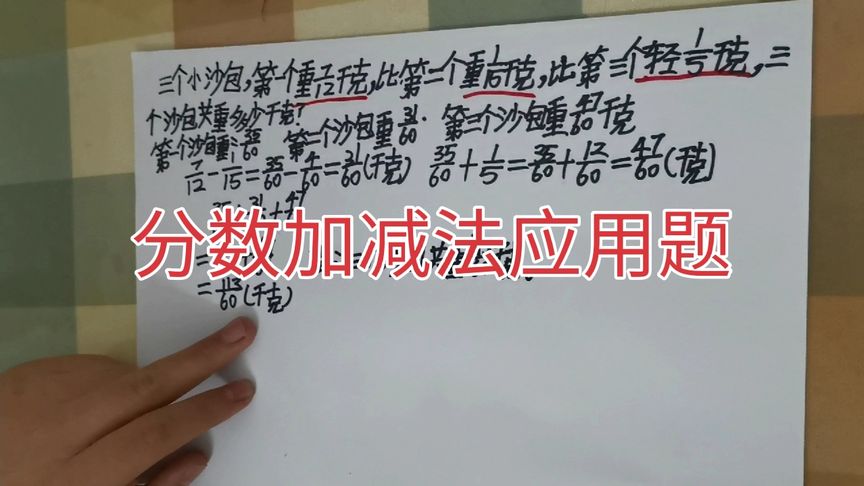 三个小沙包,第一个重7/12千克,比第二个重1/15千克,比第三个轻1/5千克,三
个沙包共重多少千克?
第一个沙包重:35/60 第二个沙包重31/60. 第三个沙包重47/60千克
7/12-1/15=35/60-4/60=31/60(千克) 35/60+1/5=35/60+12/60=47/60(千克)
分数加减法应用题
=113/60(千克)